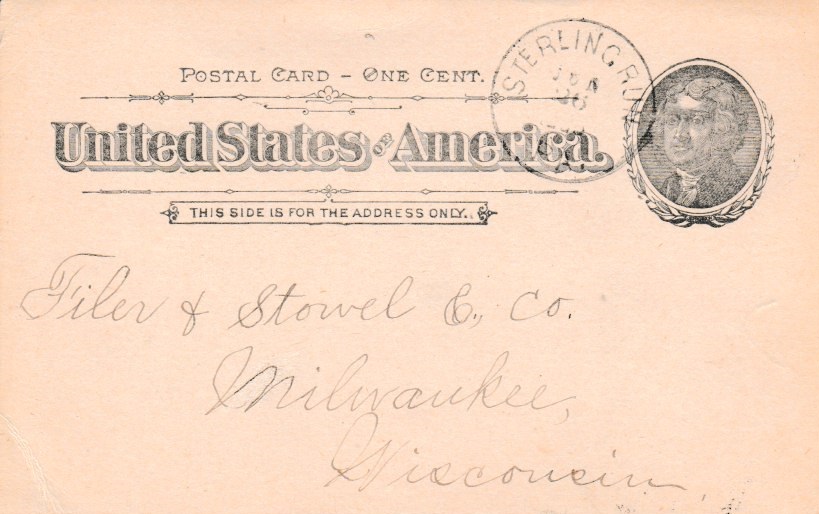 POSTAL CARD – ONE CENT.
United States OF America.
THIS SIDE IS FOR THE ADDRESS ONLY.
STERLING RUN
26
PA.
Filer & Stowel C., Co.
Milwaukee,
Wisconsin.